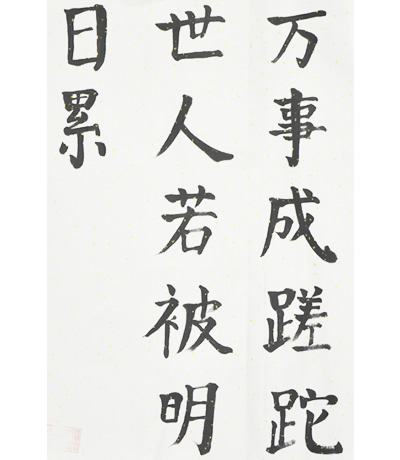 万事成蹉跎
世人若被明
日累